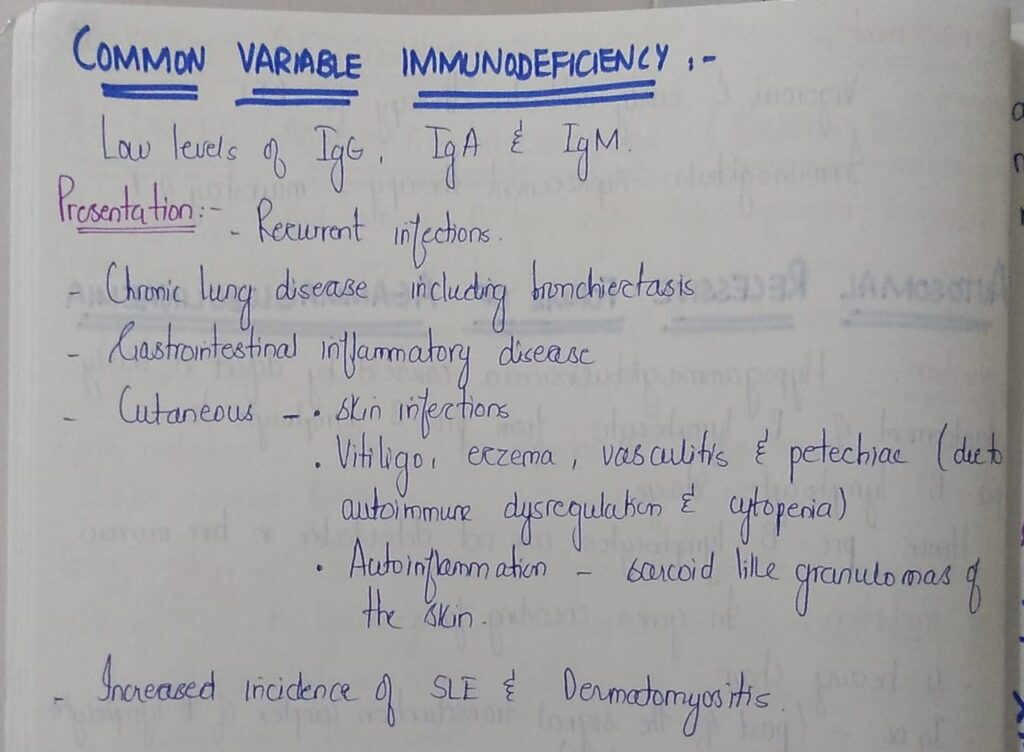 COMMON VARIABLE IMMUNODEFICIENCY :-
Low levels of IgG, IgA & IgM.
Presentation:- - Recurrent infections.
- Chronic lung disease including bronchiectasis
- Gastrointestinal inflammatory disease
- Cutaneous - • Skin infections
• Vitiligo, eczema, vasculitis & petechiae (due to
autoimmune dysregulation & cytopenia)
• Autoinflammation - sarcoid like granulomas of
the skin.
- Increased incidence of SLE & Dermatomyositis.